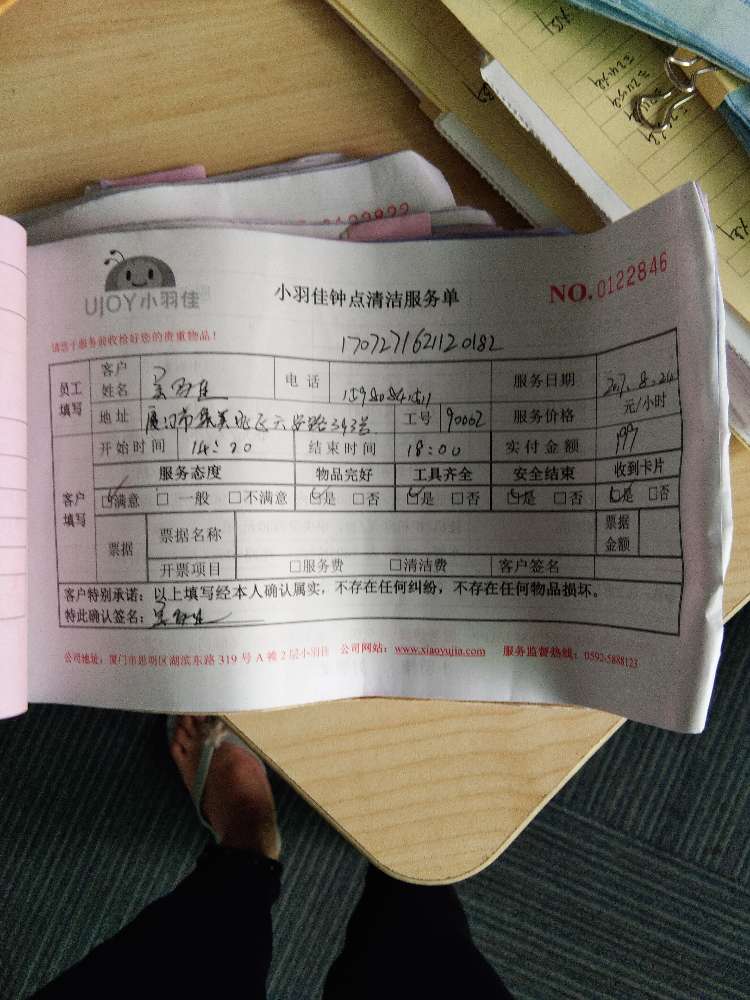 0122822
UJOY小羽佳
小羽佳钟点清洁服务单
NO.0122846
请您于服务前收捡好您的贵重物品！
1707271621120182
员工填写 客户姓名 电话 服务日期 2017.8.24
地址 厦门市集美 343号 工号 90062 服务价格 元/小时
开始时间 14:20 结束时间 18:00 实付金额 197
客户填写 服务态度 物品完好 工具齐全 安全结束 收到卡片
☑满意 □一般 □不满意 ☑是 □否 ☑是 □否 ☑是 □否 ☑是 □否
票据 票据名称 票据金额
开票项目 □服务费 □清洁费 客户签名
客户特别承诺：以上填写经本人确认属实，不存在任何纠纷，不存在任何物品损坏。
特此确认签名：
公司地址：厦门市思明区湖滨东路 319 号 A 幢 2 层小羽佳 公司网站：www.xiaoyujia.com 服务监督热线：0592-5888123